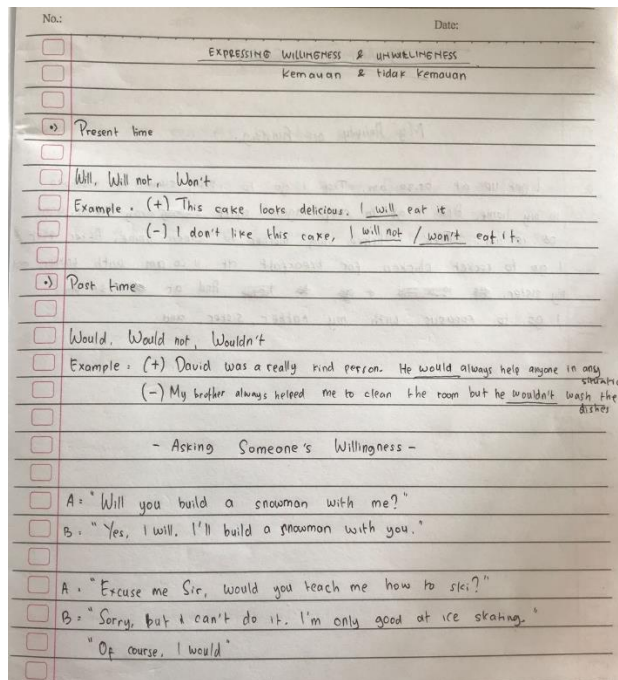 No.:
Date:
EXPRESSING WILLINGNESS & UNWILLINGNESS
kemauan & tidak kemauan
•) Present time
Will, Will not, Won't
Example : (+) This cake looks delicious. I will eat it
(-) I don't like this cake, I will not / won't eat it.
•) Past time
Would, Would not, Wouldn't
Example : (+) David was a really kind person. He would always help anyone in any situation
(-) My brother always helped me to clean the room but he wouldn't wash the dishes
- Asking Someone's Willingness -
A : "Will you build a snowman with me?"
B : "Yes, I will. I'll build a snowman with you."
A : "Excuse me Sir, would you teach me how to ski?"
B : "Sorry, but I can't do it. I'm only good at ice skating."
"Of course, I would"